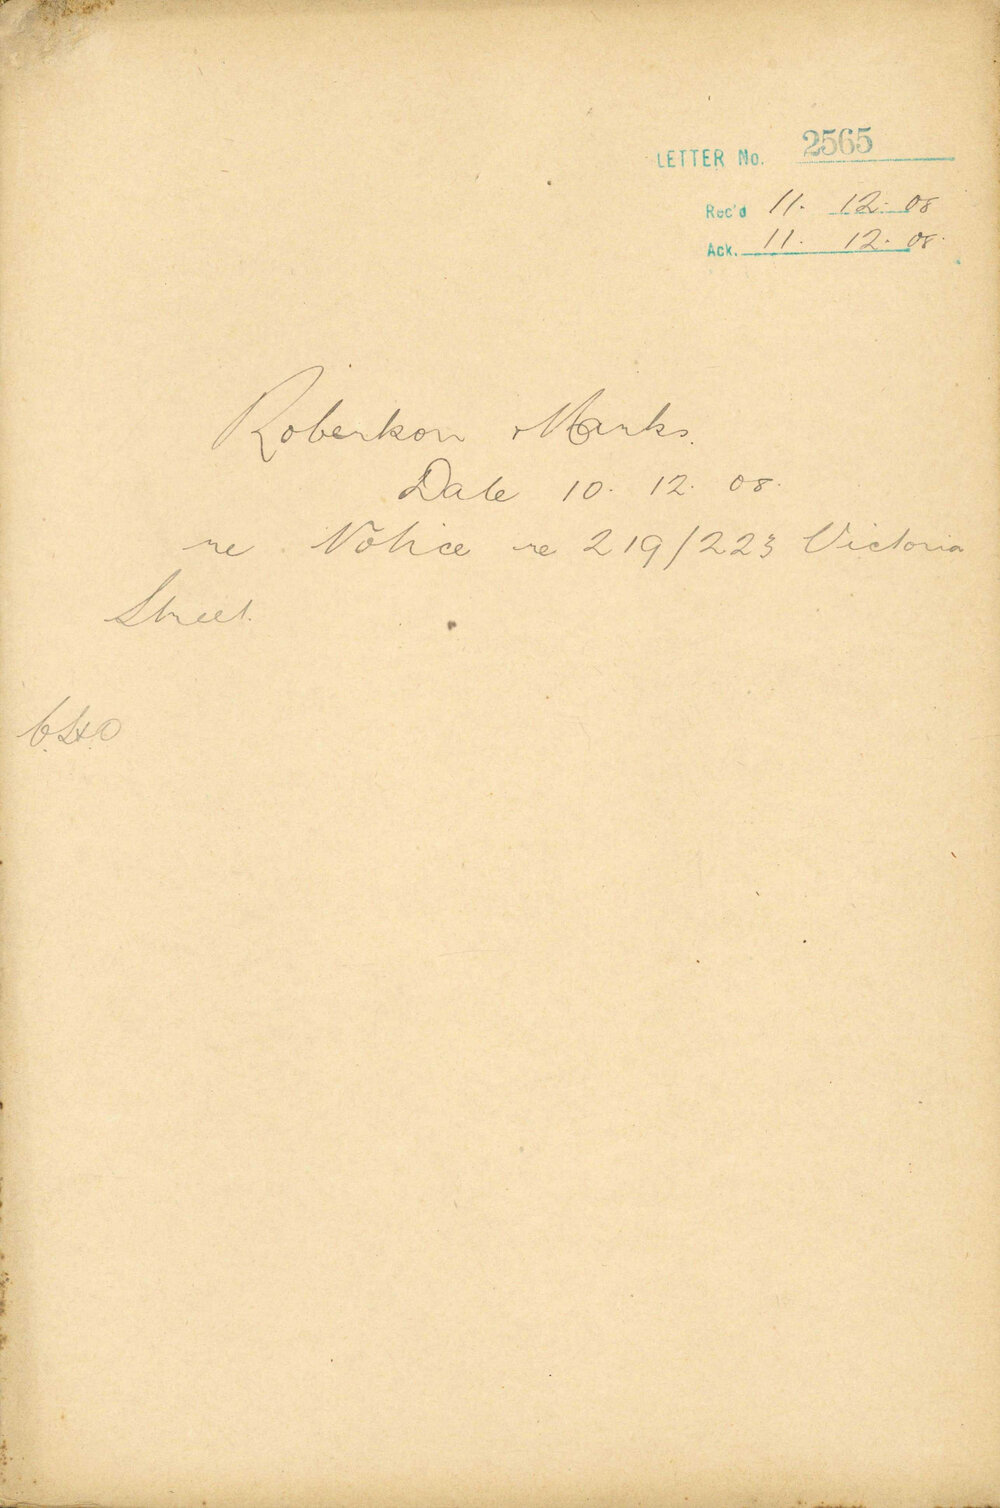 LETTER No. 2565
Rec'd 11. 12. 08
Ack. 11. 12. 08.
Robertson & Marks.
Date 10. 12. 08.
re Notice re 219/223 Victoria
Street.